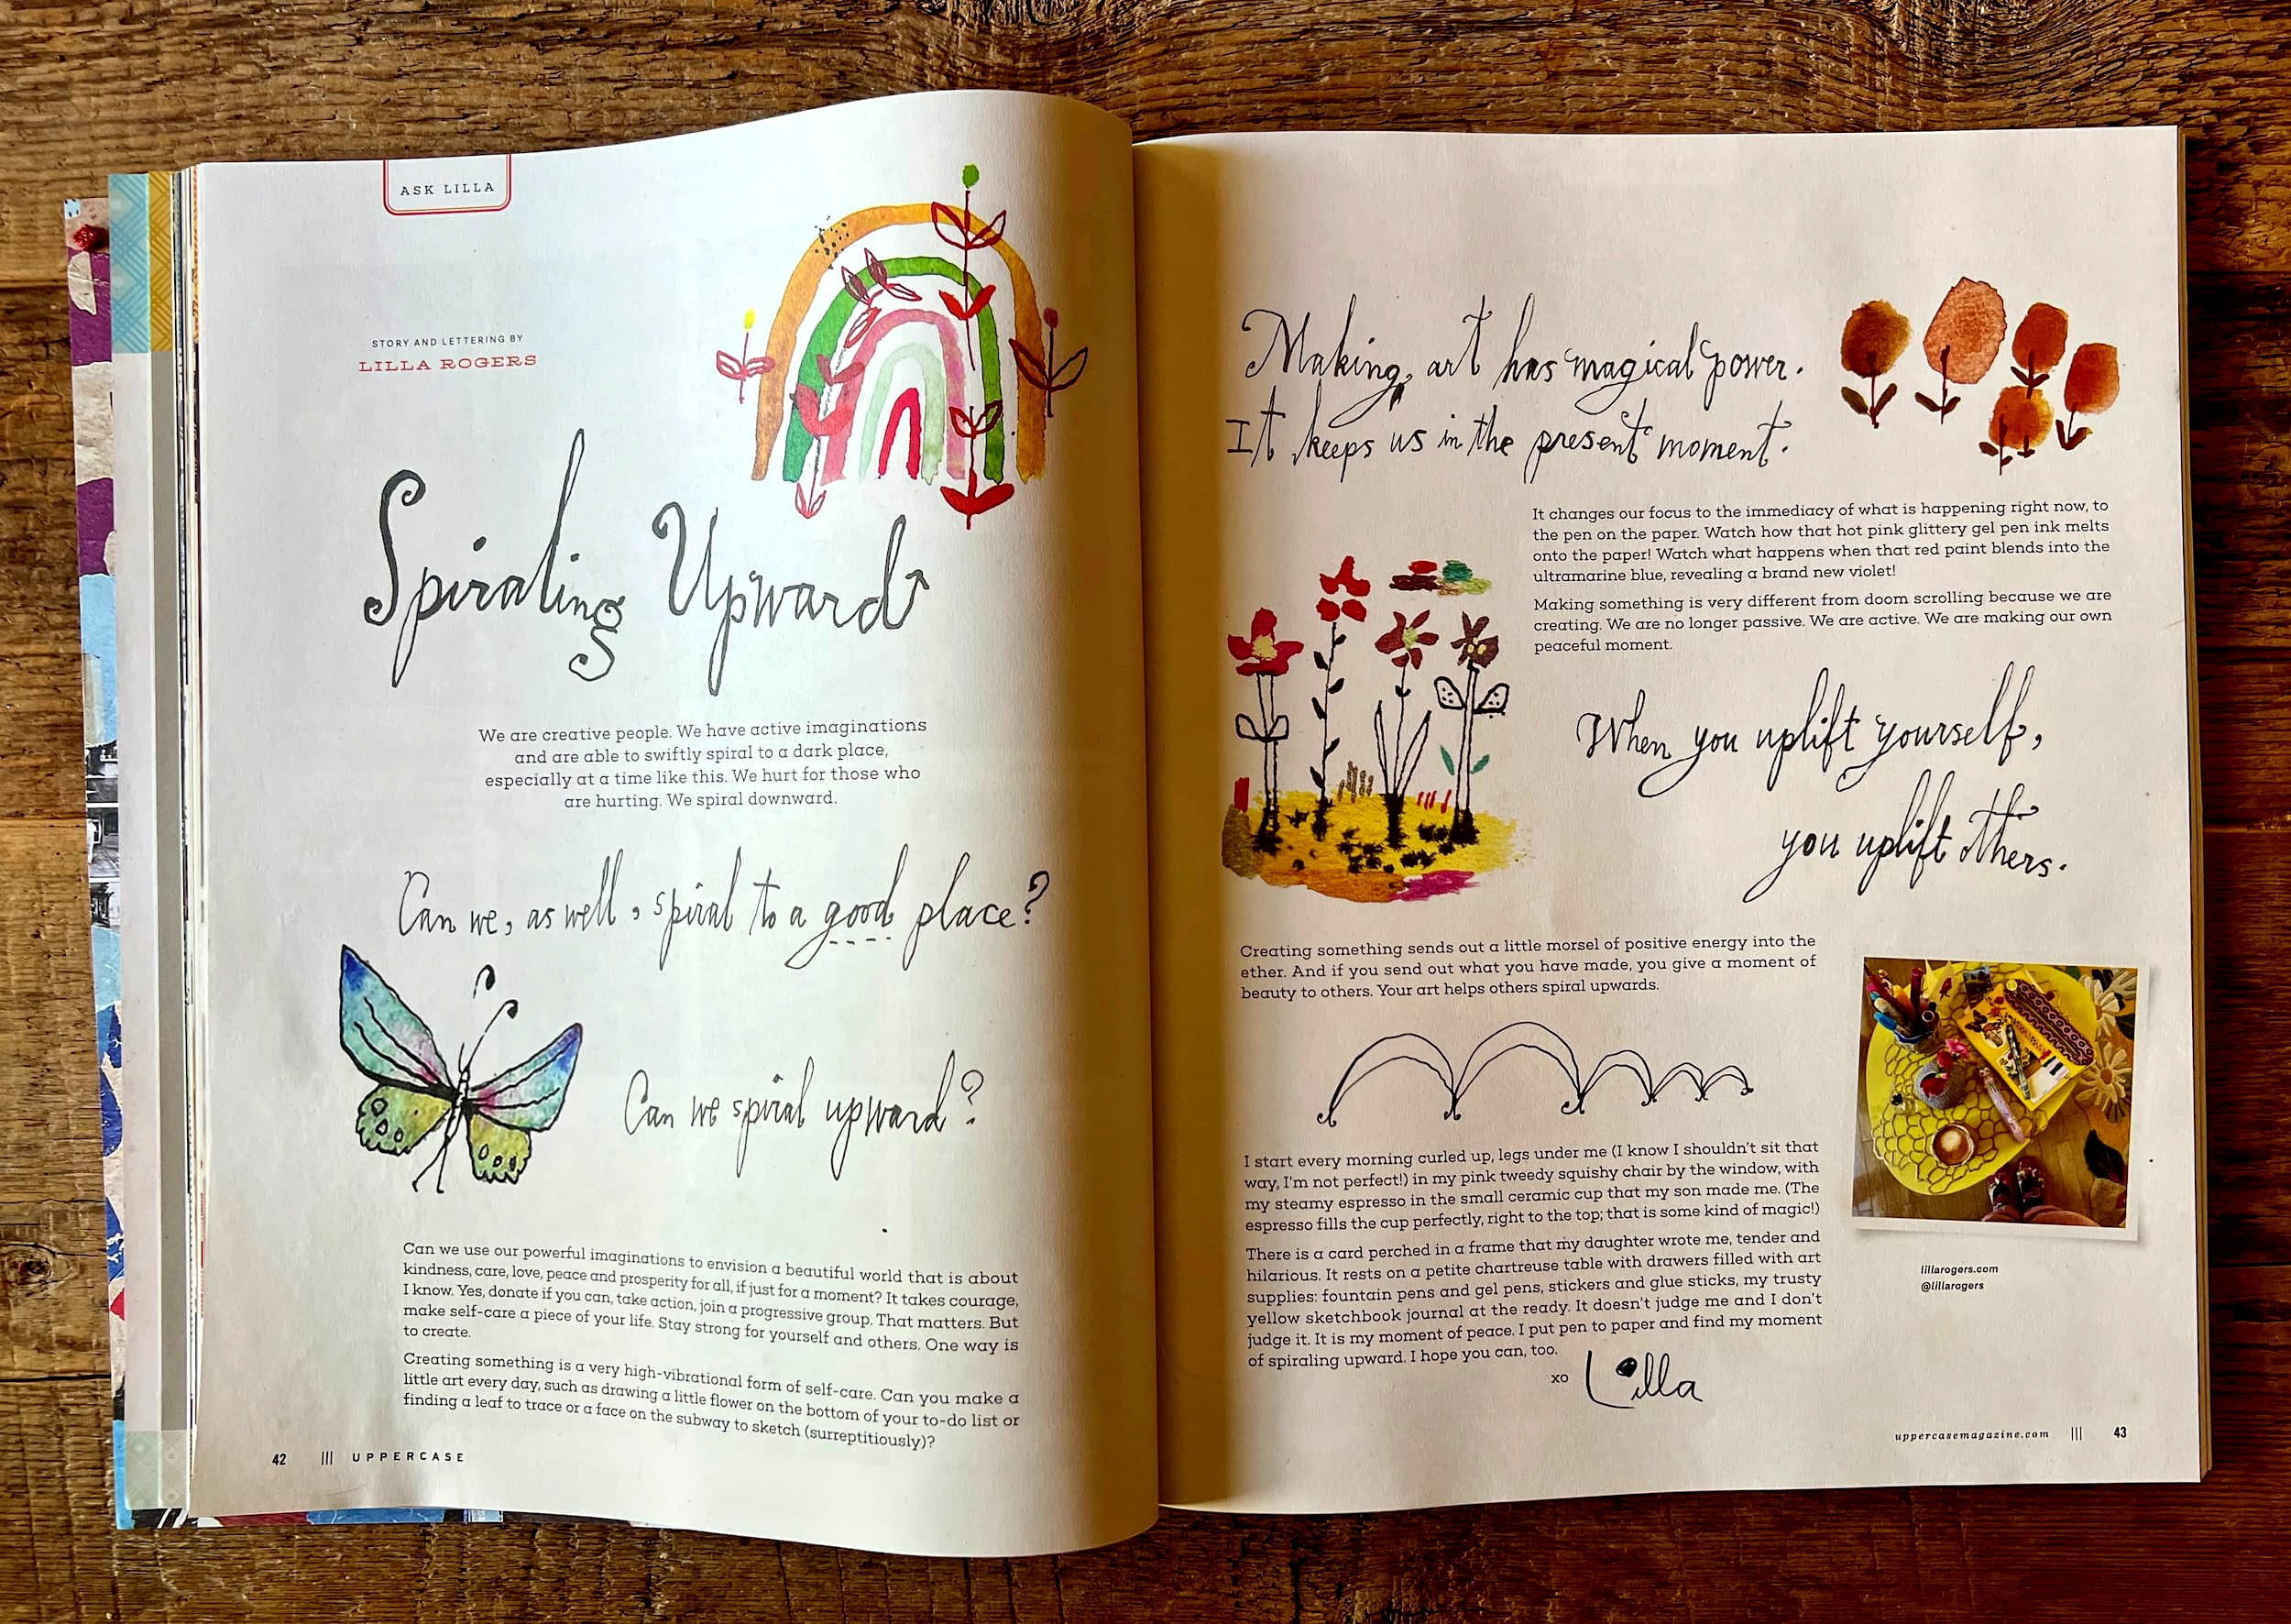 ASK LILLA
STORY AND LETTERING BY
LILLA ROGERS
Spiraling Upward
We are creative people. We have active imaginations
and are able to swiftly spiral to a dark place,
especially at a time like this. We hurt for those who
are hurting. We spiral downward.
Can we, as well, spiral to a good place?
Can we spiral upward?
Can we use our powerful imaginations to envision a beautiful world that is about
kindness, care, love, peace and prosperity for all, if just for a moment? It takes courage,
I know. Yes, donate if you can, take action, join a progressive group. That matters. But
make self-care a piece of your life. Stay strong for yourself and others. One way is
to create.
Creating something is a very high-vibrational form of self-care. Can you make a
little art every day, such as drawing a little flower on the bottom of your to-do list or
finding a leaf to trace or a face on the subway to sketch (surreptitiously)?
42 ||| UPPERCASE
Making art has magical power.
It keeps us in the present moment.
It changes our focus to the immediacy of what is happening right now, to
the pen on the paper. Watch how that hot pink glittery gel pen ink melts
onto the paper! Watch what happens when that red paint blends into the
ultramarine blue, revealing a brand new violet!
Making something is very different from doom scrolling because we are
creating. We are no longer passive. We are active. We are making our own
peaceful moment.
When you uplift yourself,
you uplift others.
Creating something sends out a little morsel of positive energy into the
ether. And if you send out what you have made, you give a moment of
beauty to others. Your art helps others spiral upwards.
I start every morning curled up, legs under me (I know I shouldn't sit that
way, I'm not perfect!) in my pink tweedy squishy chair by the window, with
my steamy espresso in the small ceramic cup that my son made me. (The
espresso fills the cup perfectly, right to the top; that is some kind of magic!)
There is a card perched in a frame that my daughter wrote me, tender and
hilarious. It rests on a petite chartreuse table with drawers filled with art
supplies: fountain pens and gel pens, stickers and glue sticks, my trusty
yellow sketchbook journal at the ready. It doesn't judge me and I don't
judge it. It is my moment of peace. I put pen to paper and find my moment
of spiraling upward. I hope you can, too.
xo Lilla
lillarogers.com
@lillarogers
uppercasemagazine.com ||| 43